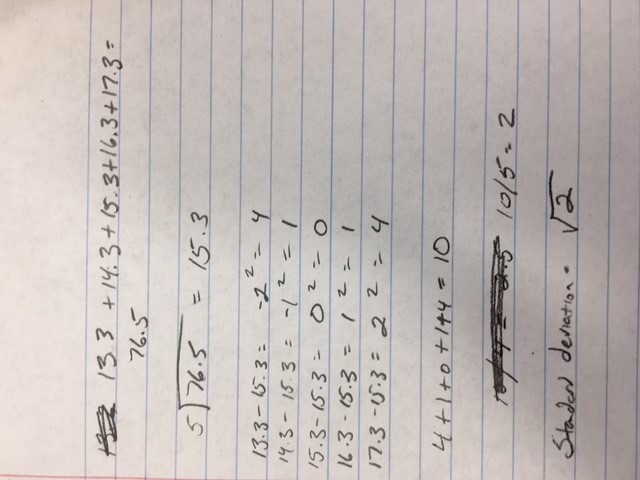 13.3 + 14.3 + 15.3 + 16.3 + 17.3 =
76.5
5)76.5 = 15.3
13.3 - 15.3 = -2² = 4
14.3 - 15.3 = -1² = 1
15.3 - 15.3 = 0² = 0
16.3 - 15.3 = 1² = 1
17.3 - 15.3 = 2² = 4
4 + 1 + 0 + 1 + 4 = 10
10/5 = 2
Standerd deviation = √2